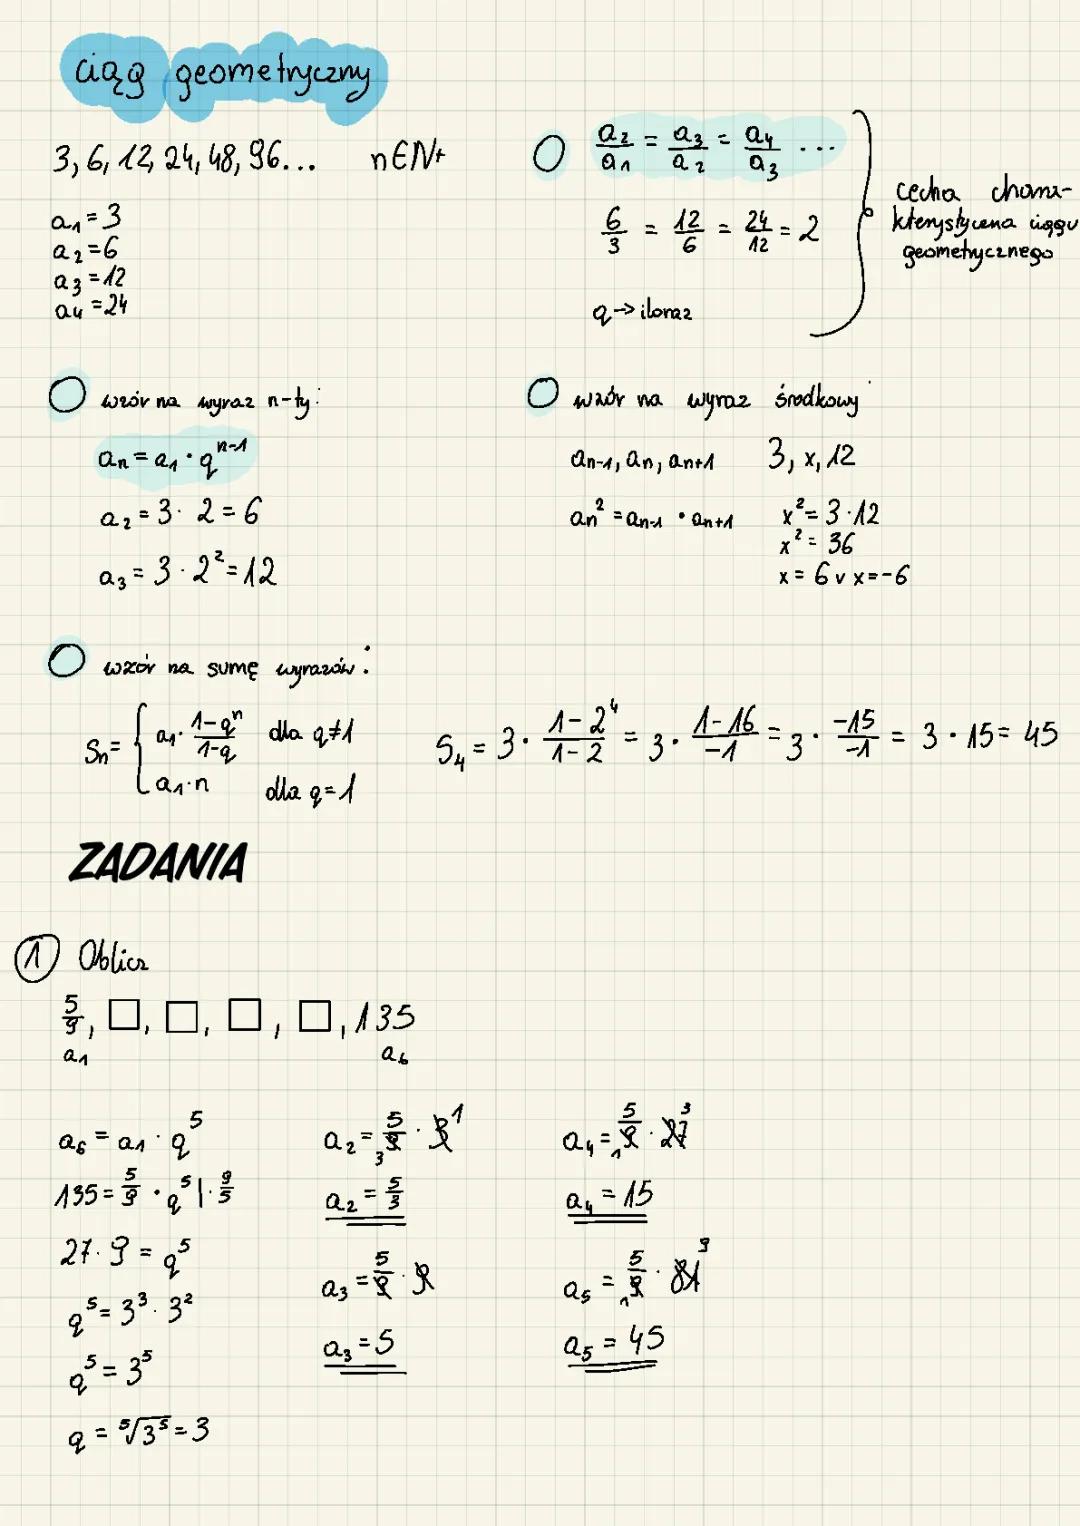 ciąg geometryczny
3, 6, 12, 24, 48, 96... n∈N+
a₁ = 3
a₂ = 6
a₃ = 12
a₄ = 24
a₂/a₁ = a₃/a₂ = a₄/a₃ ...
6/3 = 12/6 = 24/12 = 2
q → iloraz
cecha chara-
kterystyczna ciągu
geometrycznego
wzór na wyraz n-ty:
aₙ = a₁ · qⁿ⁻¹
a₂ = 3 · 2 = 6
a₃ = 3 · 2² = 12
wzór na wyraz środkowy
aₙ₋₁, aₙ, aₙ₊₁ 3, x, 12
aₙ² = aₙ₋₁ · aₙ₊₁ x² = 3·12
x² = 36
x = 6 v x = -6
wzór na sumę wyrazów:
Sₙ = { a₁ · (1-qⁿ)/(1-q) dla q≠1
a₁·n dla q=1
S₄ = 3 · (1-2⁴)/(1-2) = 3 · (1-16)/(-1) = 3 · (-15)/(-1) = 3 · 15 = 45
ZADANIA
① Oblicz
5/9, □, □, □, □, 135
a₁ a₆
a₆ = a₁ · q⁵
135 = 5/9 · q⁵ | · 9/5
27 · 9 = q⁵
q⁵ = 3³ · 3²
q⁵ = 3⁵
q = ⁵√3⁵ = 3
a₂ = 5/9 3 · 3 1
a₂ = 5/3
a₃ = 5/9 · 9
a₃ = 5
a₄ = 5/9 1 · 27 3
a₄ = 15
a₅ = 5/9 1 · 81 9
a₅ = 45